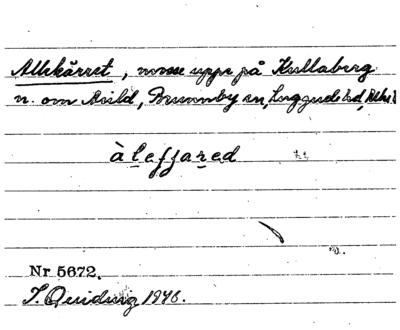 Allekärret, mosse uppe på Kullaberg
n. om Arild, Brunnby sn, Luggude hd,
àleffared
Nr 5672.
J. Quiding 1946.